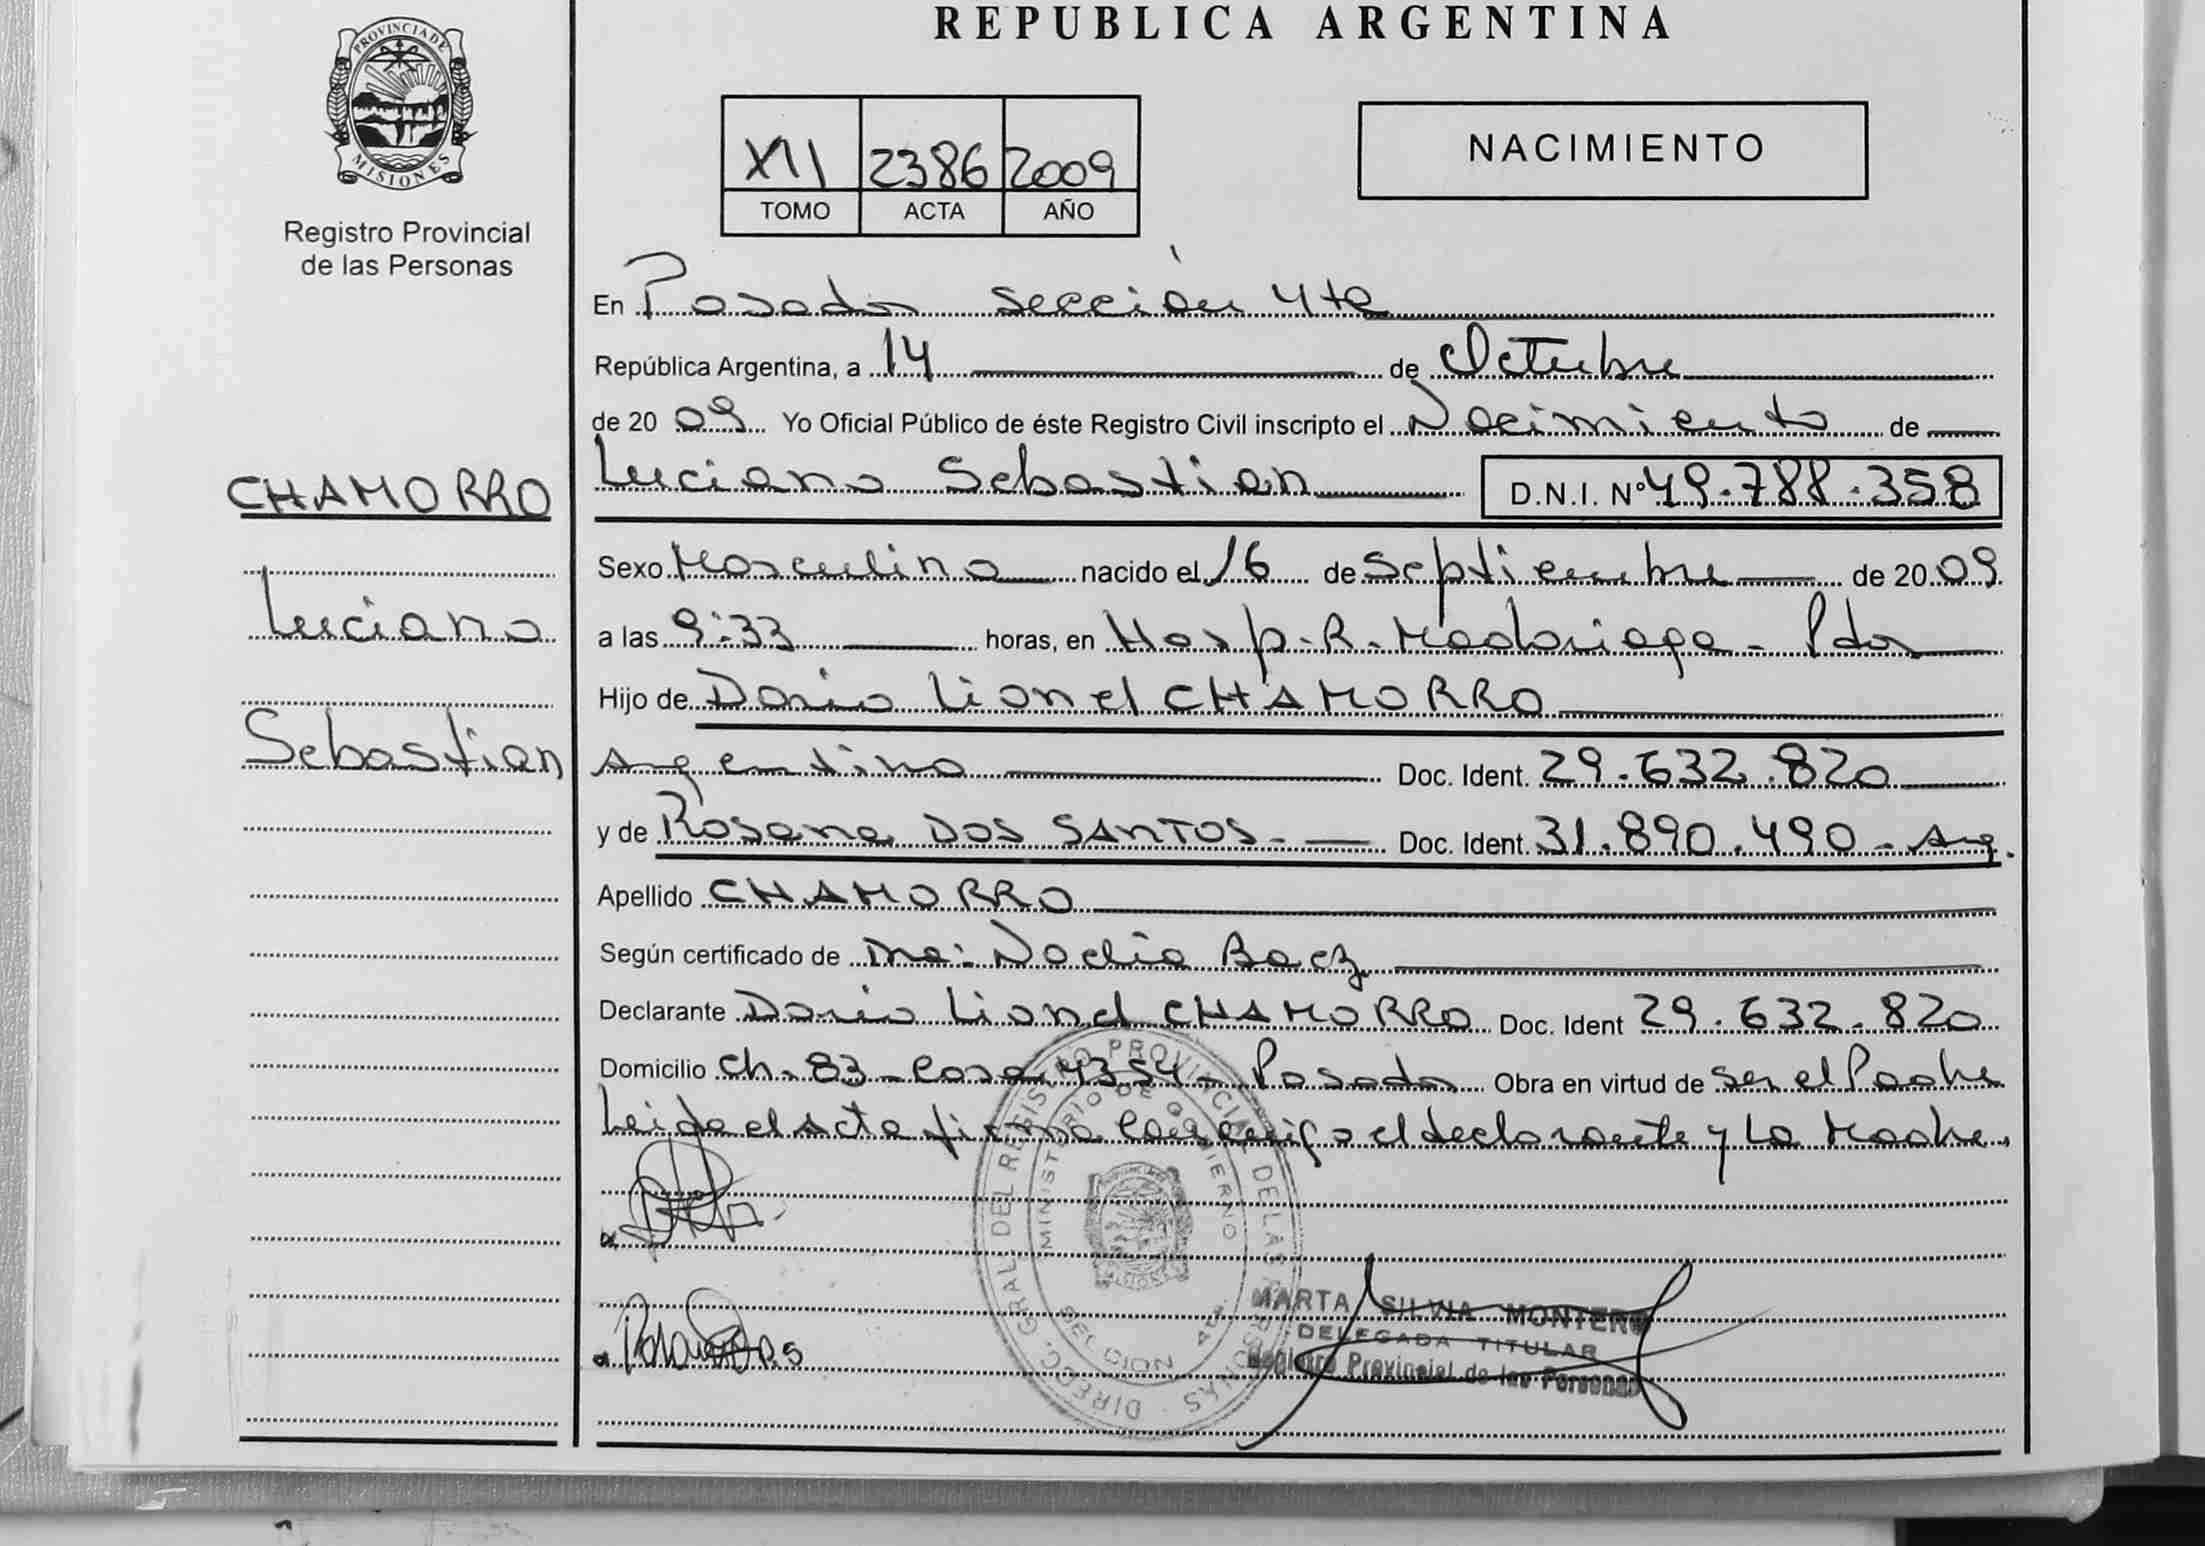 REPUBLICA ARGENTINA
PROVINCIA DE
MISIONES
Registro Provincial
de las Personas
XII 2386 2009
TOMO ACTA AÑO
NACIMIENTO
En Posadas sección 4ta
República Argentina, a 14 de Octubre
de 2009 Yo Oficial Público de éste Registro Civil inscripto el Nacimiento de
Luciano Sebastian D.N.I. Nº 49.788.358
CHAMORRO
Luciano
Sebastian
Sexo Masculino nacido el 16 de Septiembre de 2009
a las 9:33 horas, en Hosp. R. Madariaga - Pdas
Hijo de Dario Lionel CHAMORRO
Argentino Doc. Ident. 29.632.820
y de Rosana DOS SANTOS.- Doc. Ident. 31.890.490 - Arg.
Apellido CHAMORRO
Según certificado de Noelia Baez
Declarante Dario Lionel CHAMORRO Doc. Ident 29.632.820
Domicilio Ch. 83 - Casa 4354 - Posadas Obra en virtud de ser el Padre
Leida el Acta firma conmigo el declarante y La Madre.
DIRECC. GRAL. DEL REGISTRO PROVINCIAL DE LAS PERSONAS
MINISTERIO DE GOBIERNO
SECCION 4ta
MARTA SILVIA MONTERO
DELEGADA TITULAR
Registro Provincial de las Personas